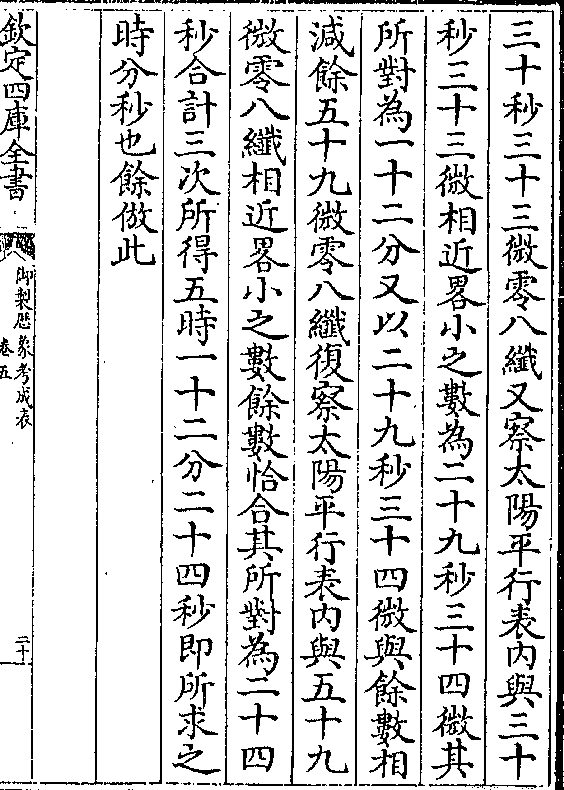 三十秒三十三微零八纖又察太陽平行表内與三十
秒三十三微相近畧小之數為二十九秒三十四微其
所對為一十二分又以二十九秒三十四微與餘數相
減餘五十九微零八纖復察太陽平行表内與五十九
微零八纖相近畧小之數餘數恰合其所對為二十四
秒合計三次所得五時一十二分二十四秒即所求之
時分秒也餘倣此
欽定四庫全書
御製厯象考成表
卷五
二十